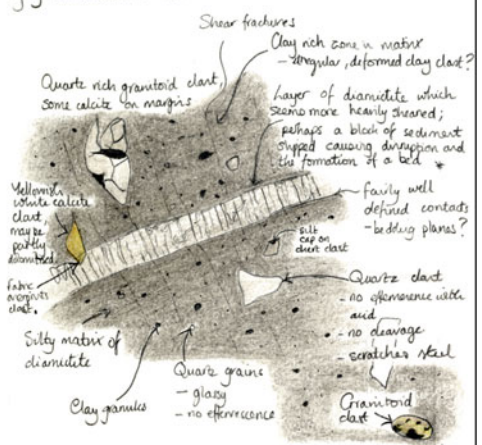 Shear fractures
Clay rich zone in matrix
- irregular, deformed clay clast?
Quartz rich granitoid clast,
some calcite on margins
Layer of diamictite which
seems more heavily sheared;
perhaps a block of sediment
slipped causing disruption and
the formation of a bed *
fairly well
defined contacts
- bedding planes?
Yellowish
white calcite
clast,
maybe
partly
dolomitised
Fabric
overgrows
clast.
silt
cap on
chert clast
Quartz clast
- no effervescence with
acid
- no cleavage
- scratches steel
Silty matrix of
diamictite
Clay granules
Quartz grains
- glassy
- no effervescence
Granitoid
clast